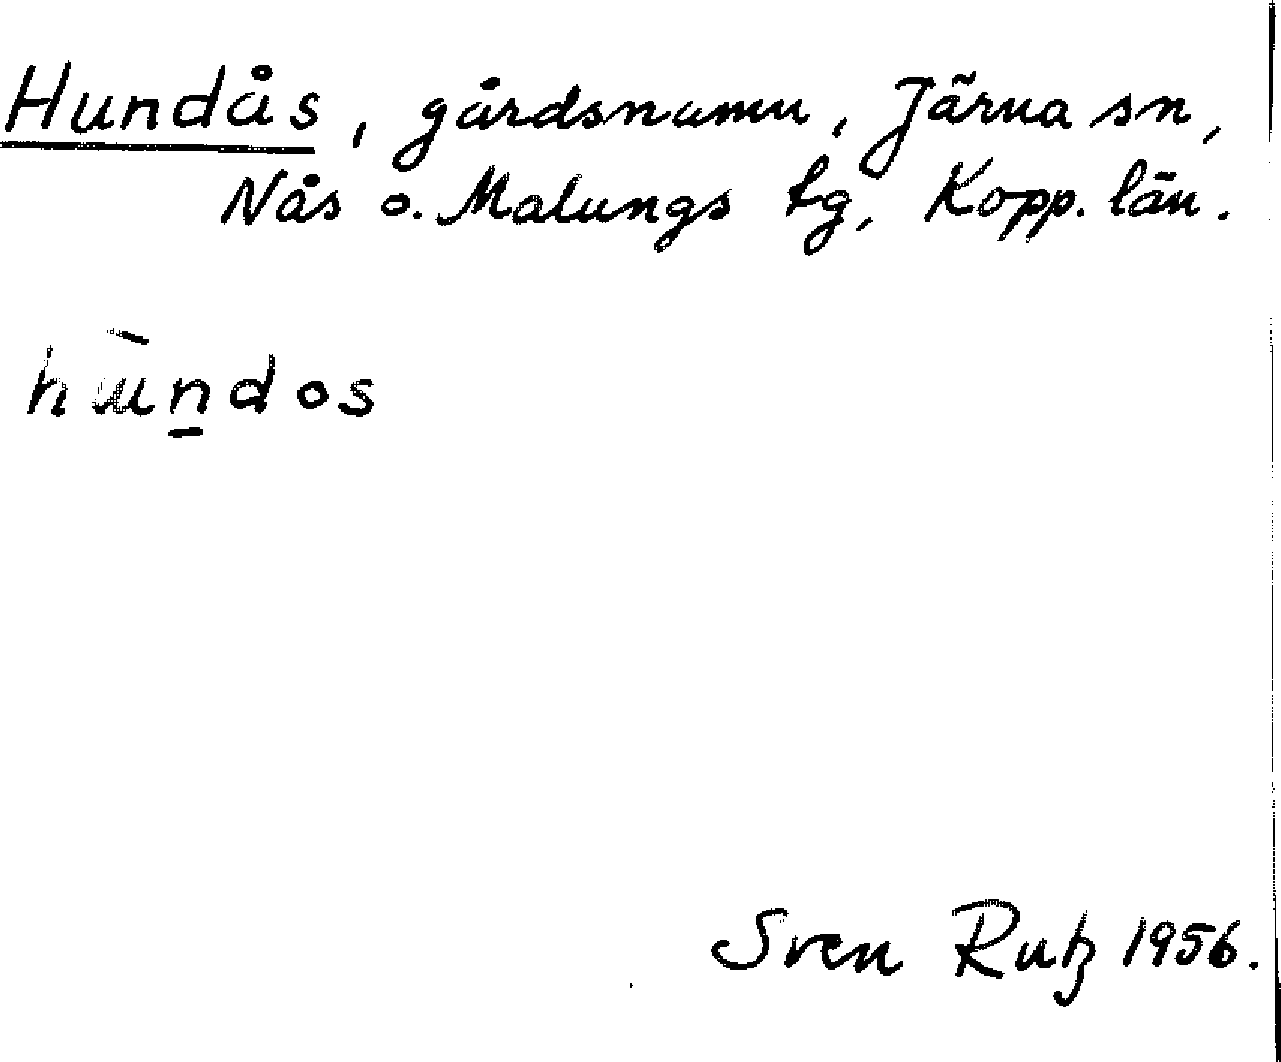 Hundås, gårdsnamn, Järna sn,
Nås o. Malungs tg, Kopp. län.
hùn̲dos
Sven Rutz 1956.